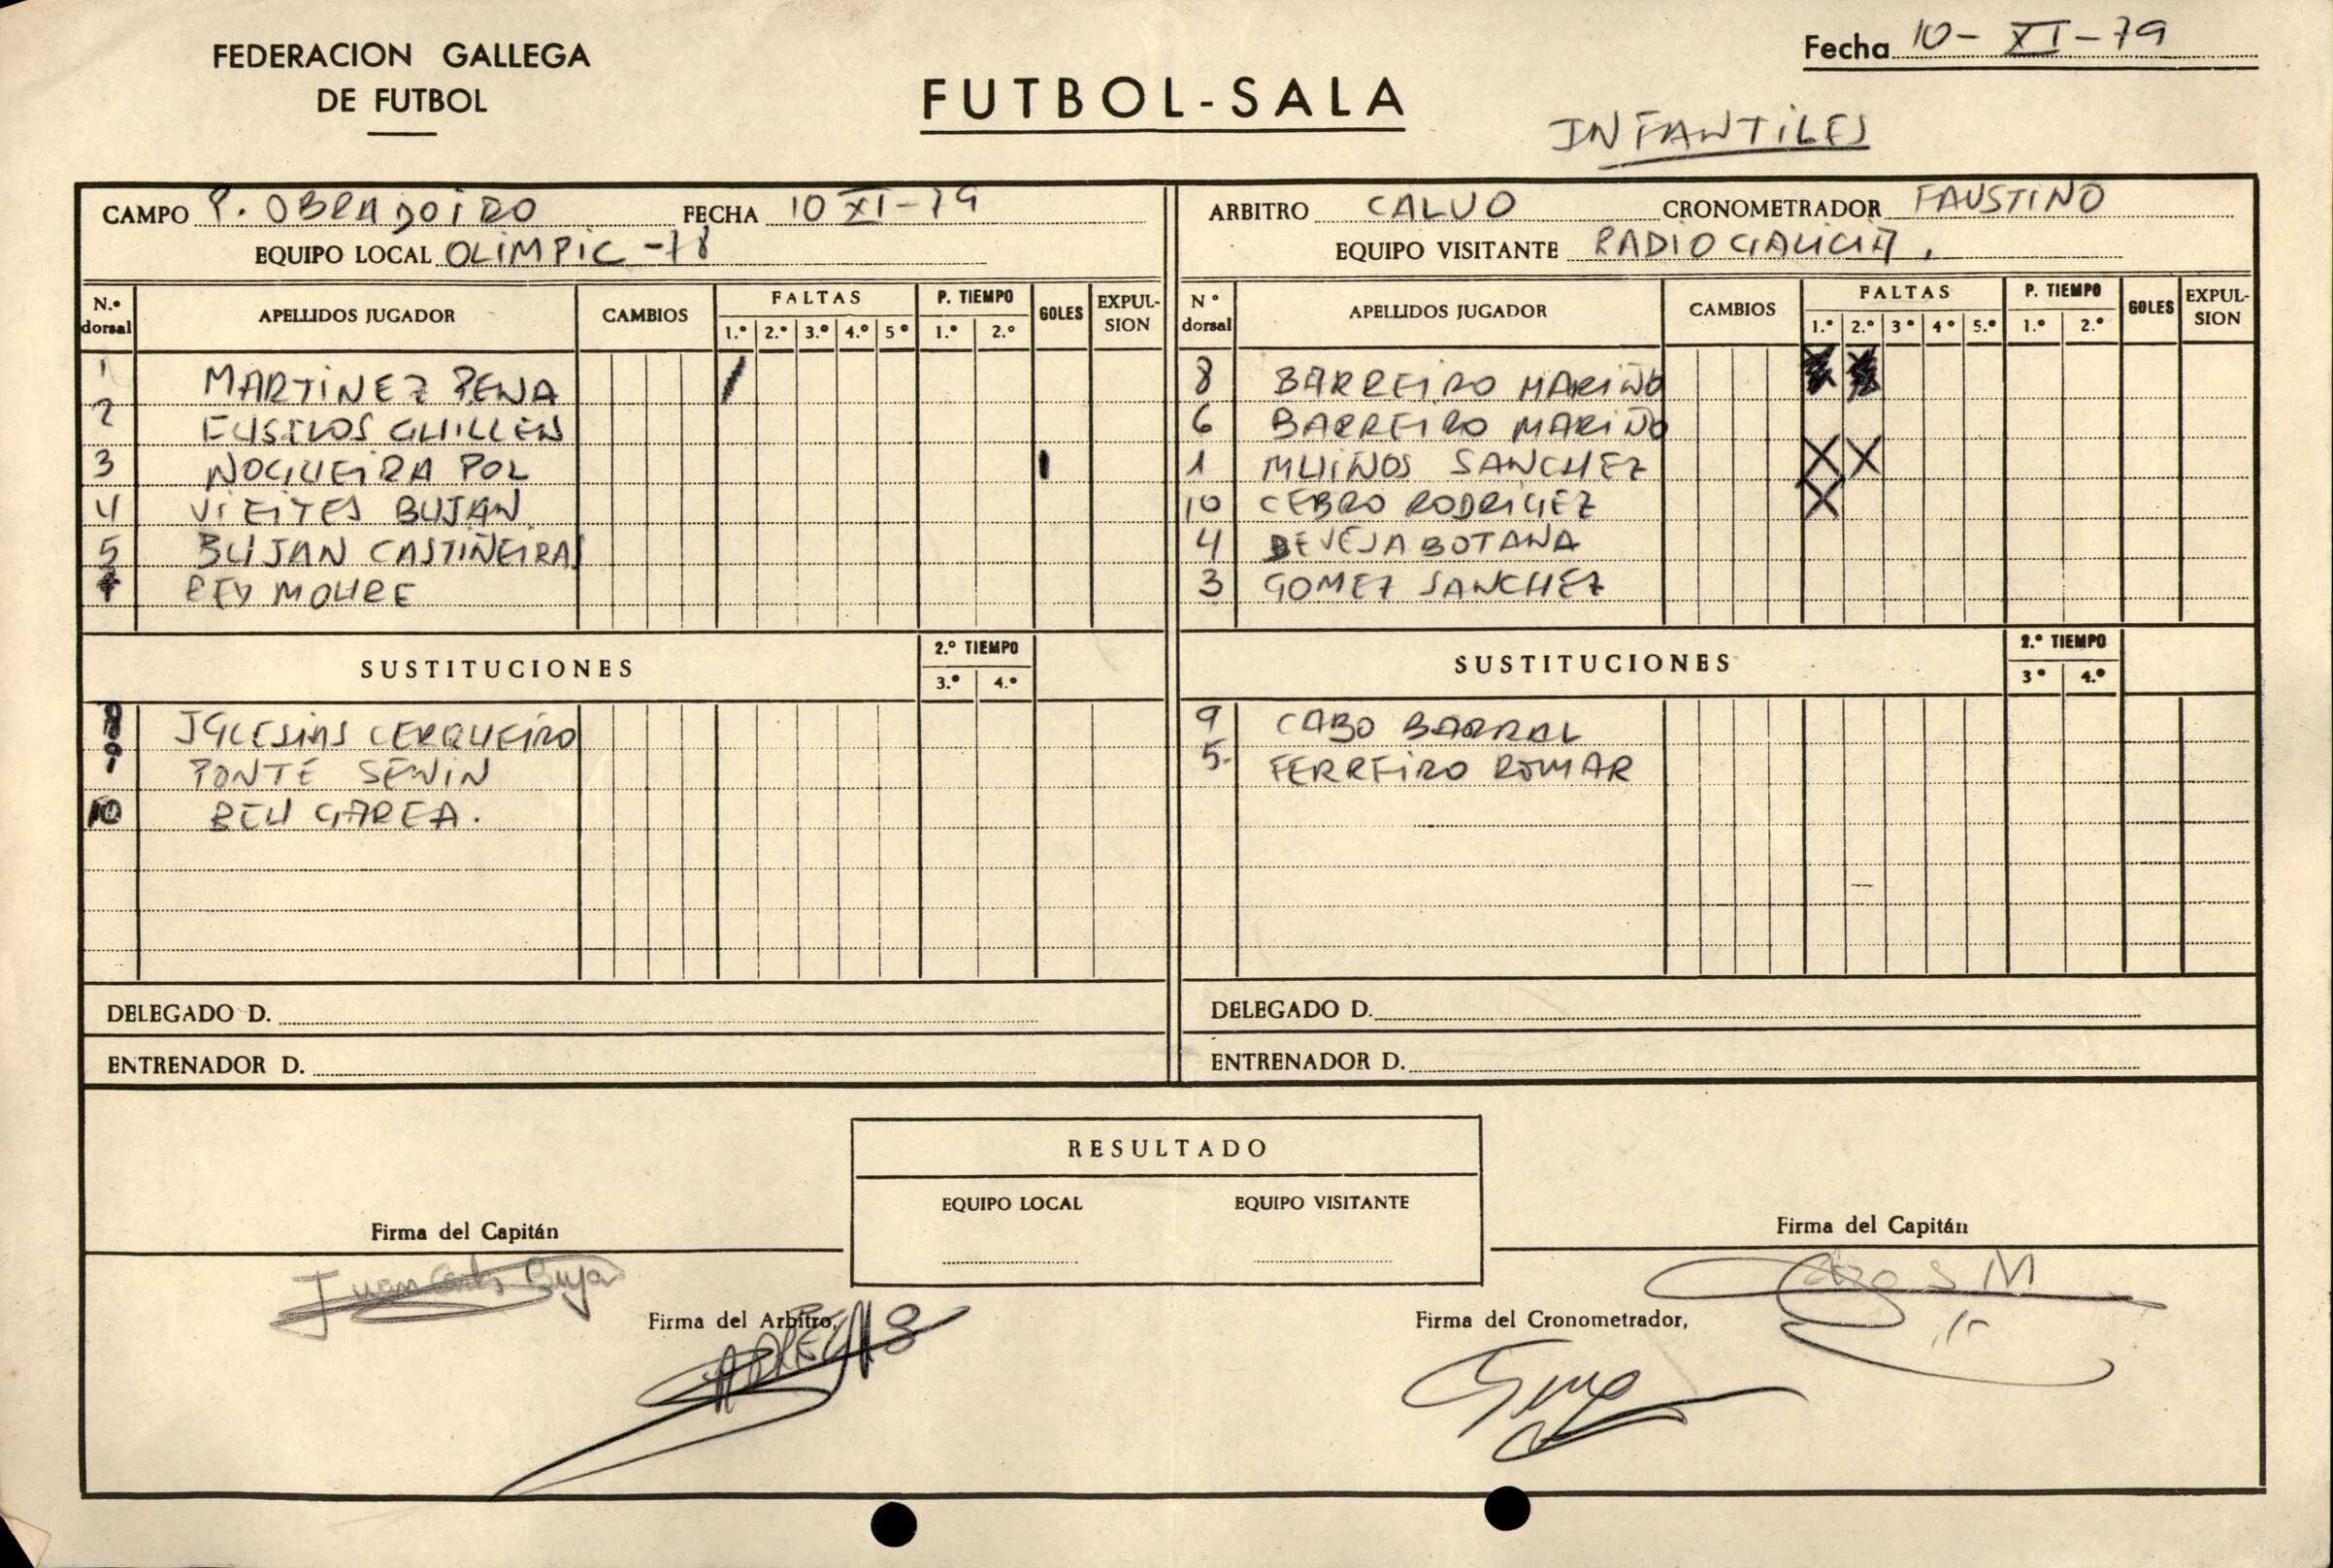 FEDERACION GALLEGA
DE FUTBOL
FUTBOL-SALA
Fecha 10-XI-79
INFANTILES
CAMPO P. OBRADOIRO FECHA 10 XI-79
EQUIPO LOCAL OLIMPIC-78
ARBITRO CALVO CRONOMETRADOR FAUSTINO
EQUIPO VISITANTE RADIO GALICIA.
N.º dorsal APELLIDOS JUGADOR CAMBIOS FALTAS 1.º 2.º 3.º 4.º 5º P. TIEMPO 1.º 2.º GOLES EXPUL-SION
1 MARTINEZ PENA /
2 GUILLEN
3 NOGUEIRA POL I
4 VIEITES BUJAN
5 BUJAN CASTIÑEIRAS
7 REY MOURE
SUSTITUCIONES 2.º TIEMPO 3.º 4.º
8 IGLESIAS CERQUEIRO
9 PONTE SENIN
10 GAREA.
DELEGADO D.
ENTRENADOR D.
Nº dorsal APELLIDOS JUGADOR CAMBIOS FALTAS 1.º 2.º 3º 4º 5.º P. TIEMPO 1.º 2.º GOLES EXPUL-SION
8 BARREIRO MARIÑO X X
6 BARREIRO MARIÑO
1 MUIÑOS SANCHEZ X X
10 CEBRO RODRIGUEZ X
4 BEVEJA BOTANA
3 GOMEZ SANCHEZ
SUSTITUCIONES 2.º TIEMPO 3º 4.º
9 CABO BARRAL
5. FERREIRO ROMAR
DELEGADO D.
ENTRENADOR D.
RESULTADO
EQUIPO LOCAL EQUIPO VISITANTE
Firma del Capitán
Juan Carlos Buja
Firma del Capitán
Firma del Arbitro,
Firma del Cronometrador,